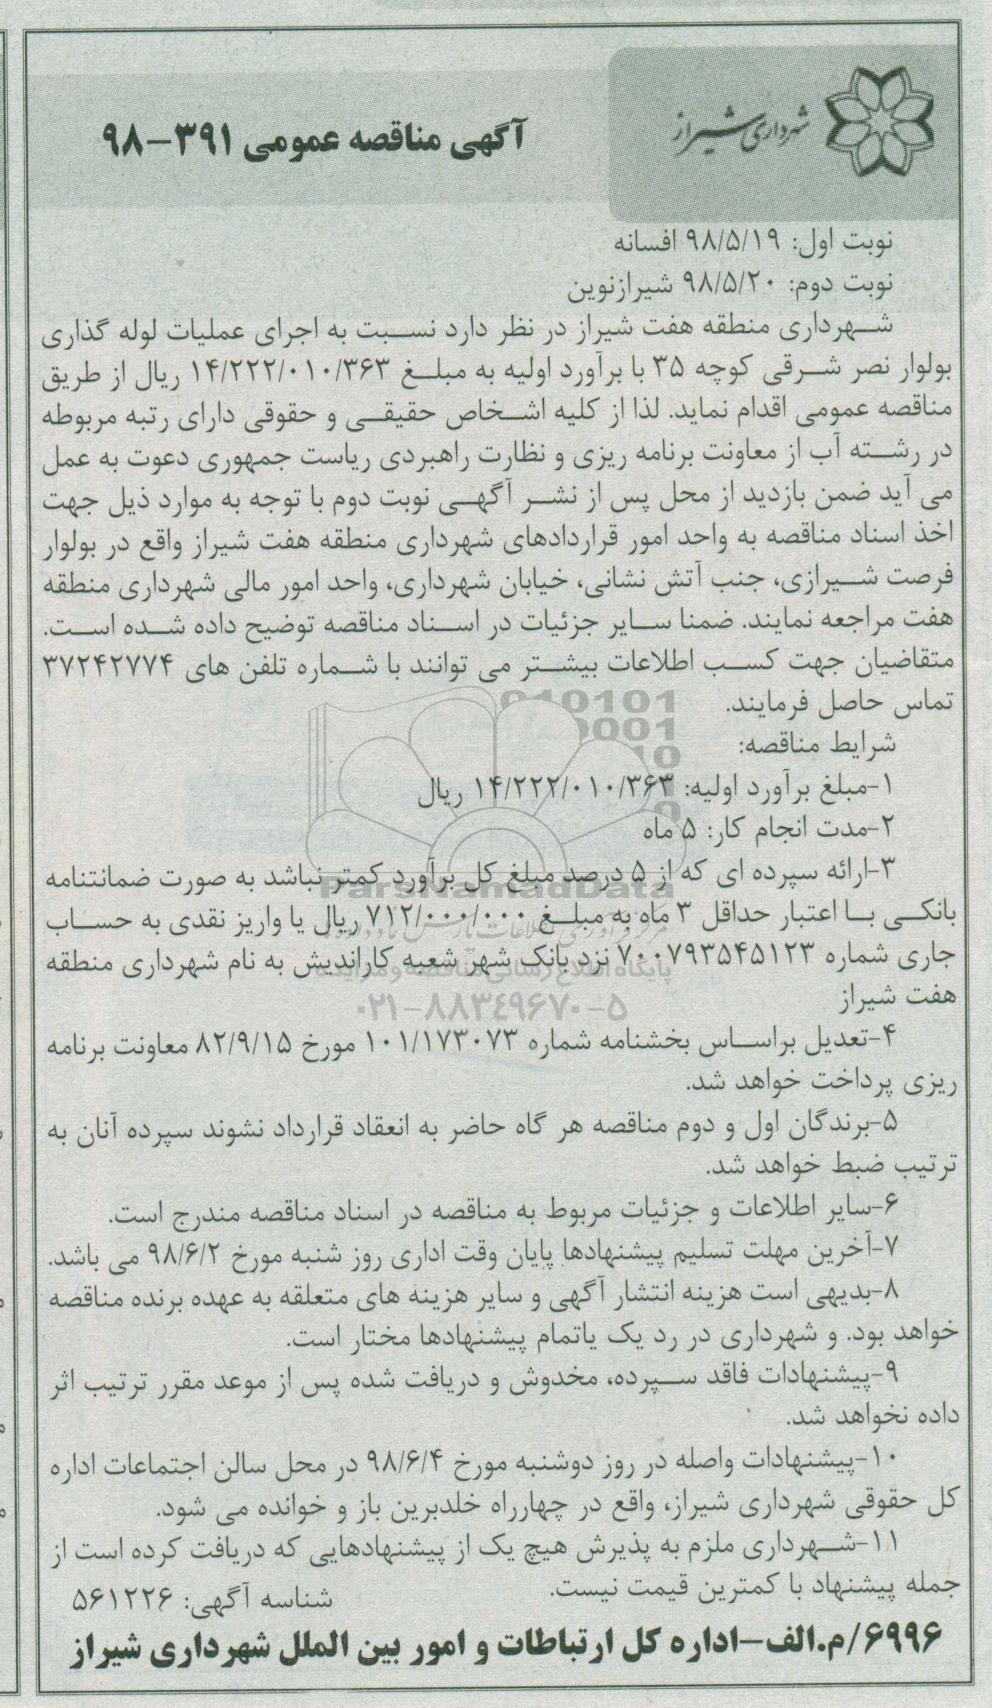 شهرداری شیراز
آگهی مناقصه عمومی ۳۹۱-۹۸
نوبت اول: ۹۸/۵/۱۹ افسانه
نوبت دوم: ۹۸/۵/۲۰ شیرازنوین
شهرداری منطقه هفت شیراز در نظر دارد نسبت به اجرای عملیات لوله گذاری
بولوار نصر شرقی کوچه ۳۵ با برآورد اولیه به مبلغ ۱۴/۲۲۲/۰۱۰/۳۶۳ ریال از طریق
مناقصه عمومی اقدام نماید. لذا از کلیه اشخاص حقیقی و حقوقی دارای رتبه مربوطه
در رشته آب از معاونت برنامه ریزی و نظارت راهبردی ریاست جمهوری دعوت به عمل
می آید ضمن بازدید از محل پس از نشر آگهی نوبت دوم با توجه به موارد ذیل جهت
اخذ اسناد مناقصه به واحد امور قراردادهای شهرداری منطقه هفت شیراز واقع در بولوار
فرصت شیرازی، جنب آتش نشانی، خیابان شهرداری، واحد امور مالی شهرداری منطقه
هفت مراجعه نمایند. ضمنا سایر جزئیات در اسناد مناقصه توضیح داده شده است.
متقاضیان جهت کسب اطلاعات بیشتر می توانند با شماره تلفن های ۳۷۲۴۲۷۷۴
تماس حاصل فرمایند.
شرایط مناقصه:
۱-مبلغ برآورد اولیه: ۱۴/۲۲۲/۰۱۰/۳۶۳ ریال
۲-مدت انجام کار: ۵ ماه
۳-ارائه سپرده ای که از ۵ درصد مبلغ کل برآورد کمتر نباشد به صورت ضمانتنامه
بانکی با اعتبار حداقل ۳ ماه به مبلغ ۷۱۲/۰۰۰/۰۰۰ ریال یا واریز نقدی به حساب
جاری شماره ۷۰۰۷۹۳۵۴۵۱۲۳ نزد بانک شهر شعبه کاراندیش به نام شهرداری منطقه
هفت شیراز
۴-تعدیل براساس بخشنامه شماره ۱۰۱/۱۷۳۰۷۳ مورخ ۸۲/۹/۱۵ معاونت برنامه
ریزی پرداخت خواهد شد.
۵-برندگان اول و دوم مناقصه هر گاه حاضر به انعقاد قرارداد نشوند سپرده آنان به
ترتیب ضبط خواهد شد.
۶-سایر اطلاعات و جزئیات مربوط به مناقصه در اسناد مناقصه مندرج است.
۷-آخرین مهلت تسلیم پیشنهادها پایان وقت اداری روز شنبه مورخ ۹۸/۶/۲ می باشد.
۸-بدیهی است هزینه انتشار آگهی و سایر هزینه های متعلقه به عهده برنده مناقصه
خواهد بود. و شهرداری در رد یک یاتمام پیشنهادها مختار است.
۹-پیشنهادات فاقد سپرده، مخدوش و دریافت شده پس از موعد مقرر ترتیب اثر
داده نخواهد شد.
۱۰-پیشنهادات واصله در روز دوشنبه مورخ ۹۸/۶/۴ در محل سالن اجتماعات اداره
کل حقوقی شهرداری شیراز، واقع در چهارراه خلدبرین باز و خوانده می شود.
۱۱-شهرداری ملزم به پذیرش هیچ یک از پیشنهادهایی که دریافت کرده است از
جمله پیشنهاد با کمترین قیمت نیست.
شناسه آگهی: ۵۶۱۲۲۶
۶۹۹۶/م.الف-اداره کل ارتباطات و امور بین الملل شهرداری شیراز
ParsNamadData
پایگاه اطلاع رسانی مناقصه و مزایده
۰۲۱-۸۸۳۴۹۶۷۰-۵